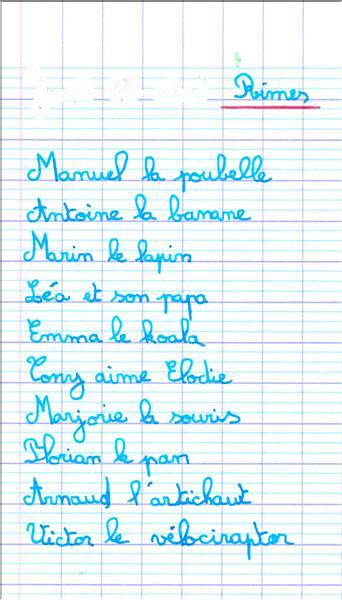 Rimes
Manuel la poubelle
Antoine la banane
Marin le lapin
Léa et son papa
Emma le koala
Tony aime Elodie
Marjorie la souris
Florian le pan
Arnaud l'artichaut
Victor le vélociraptor